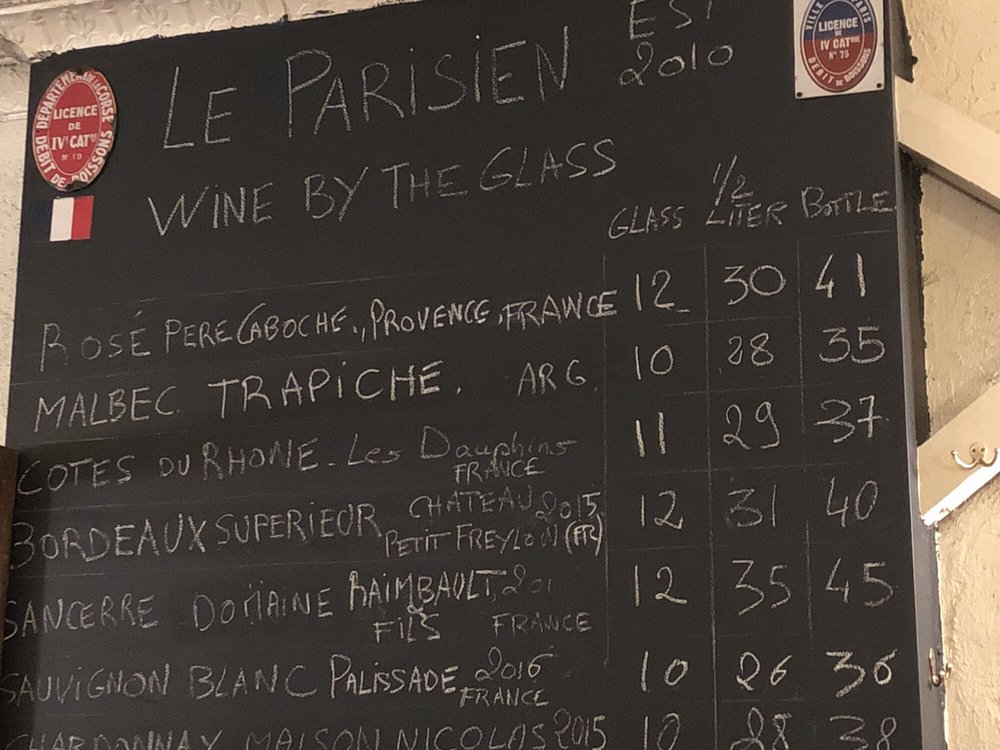 LE PARISIEN EST 2010
DEPARTEMENT DE LA CORSE
LICENCE
DE
IVE CATRIE
N° 19
DEBIT DE BOISSONS
VILLE DE PARIS
LICENCE
DE
IV CATRIE
N° 75
DEBIT DE BOISSONS
WINE BY THE GLASS
GLASS 1/2 LITER BOTTLE
ROSÉ PERE CABOCHE, PROVENCE, FRANCE 12 30 41
MALBEC TRAPICHE. ARG. 10 28 35
COTES DU RHONE - Les Dauphins FRANCE 11 29 37
BORDEAUX SUPERIEUR CHATEAU 2015 PETIT FREYLON (FR) 12 31 40
SANCERRE DOMAINE RAIMBAULT, & FILS FRANCE 12 35 45
SAUVIGNON BLANC PALISSADE 2016 FRANCE 10 26 36
CHARDONNAY MAISON NICOLAS 2015 10 28 38